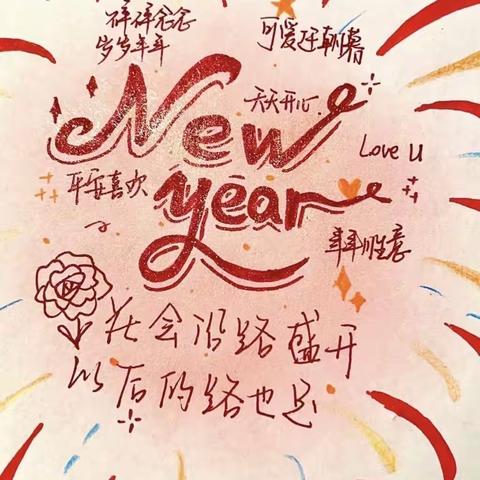 碎碎念念
岁岁年年
可爱 朝暮
天天开心
New
Love U
平安喜欢
year
胜意
花会沿路盛开
以后的路也是